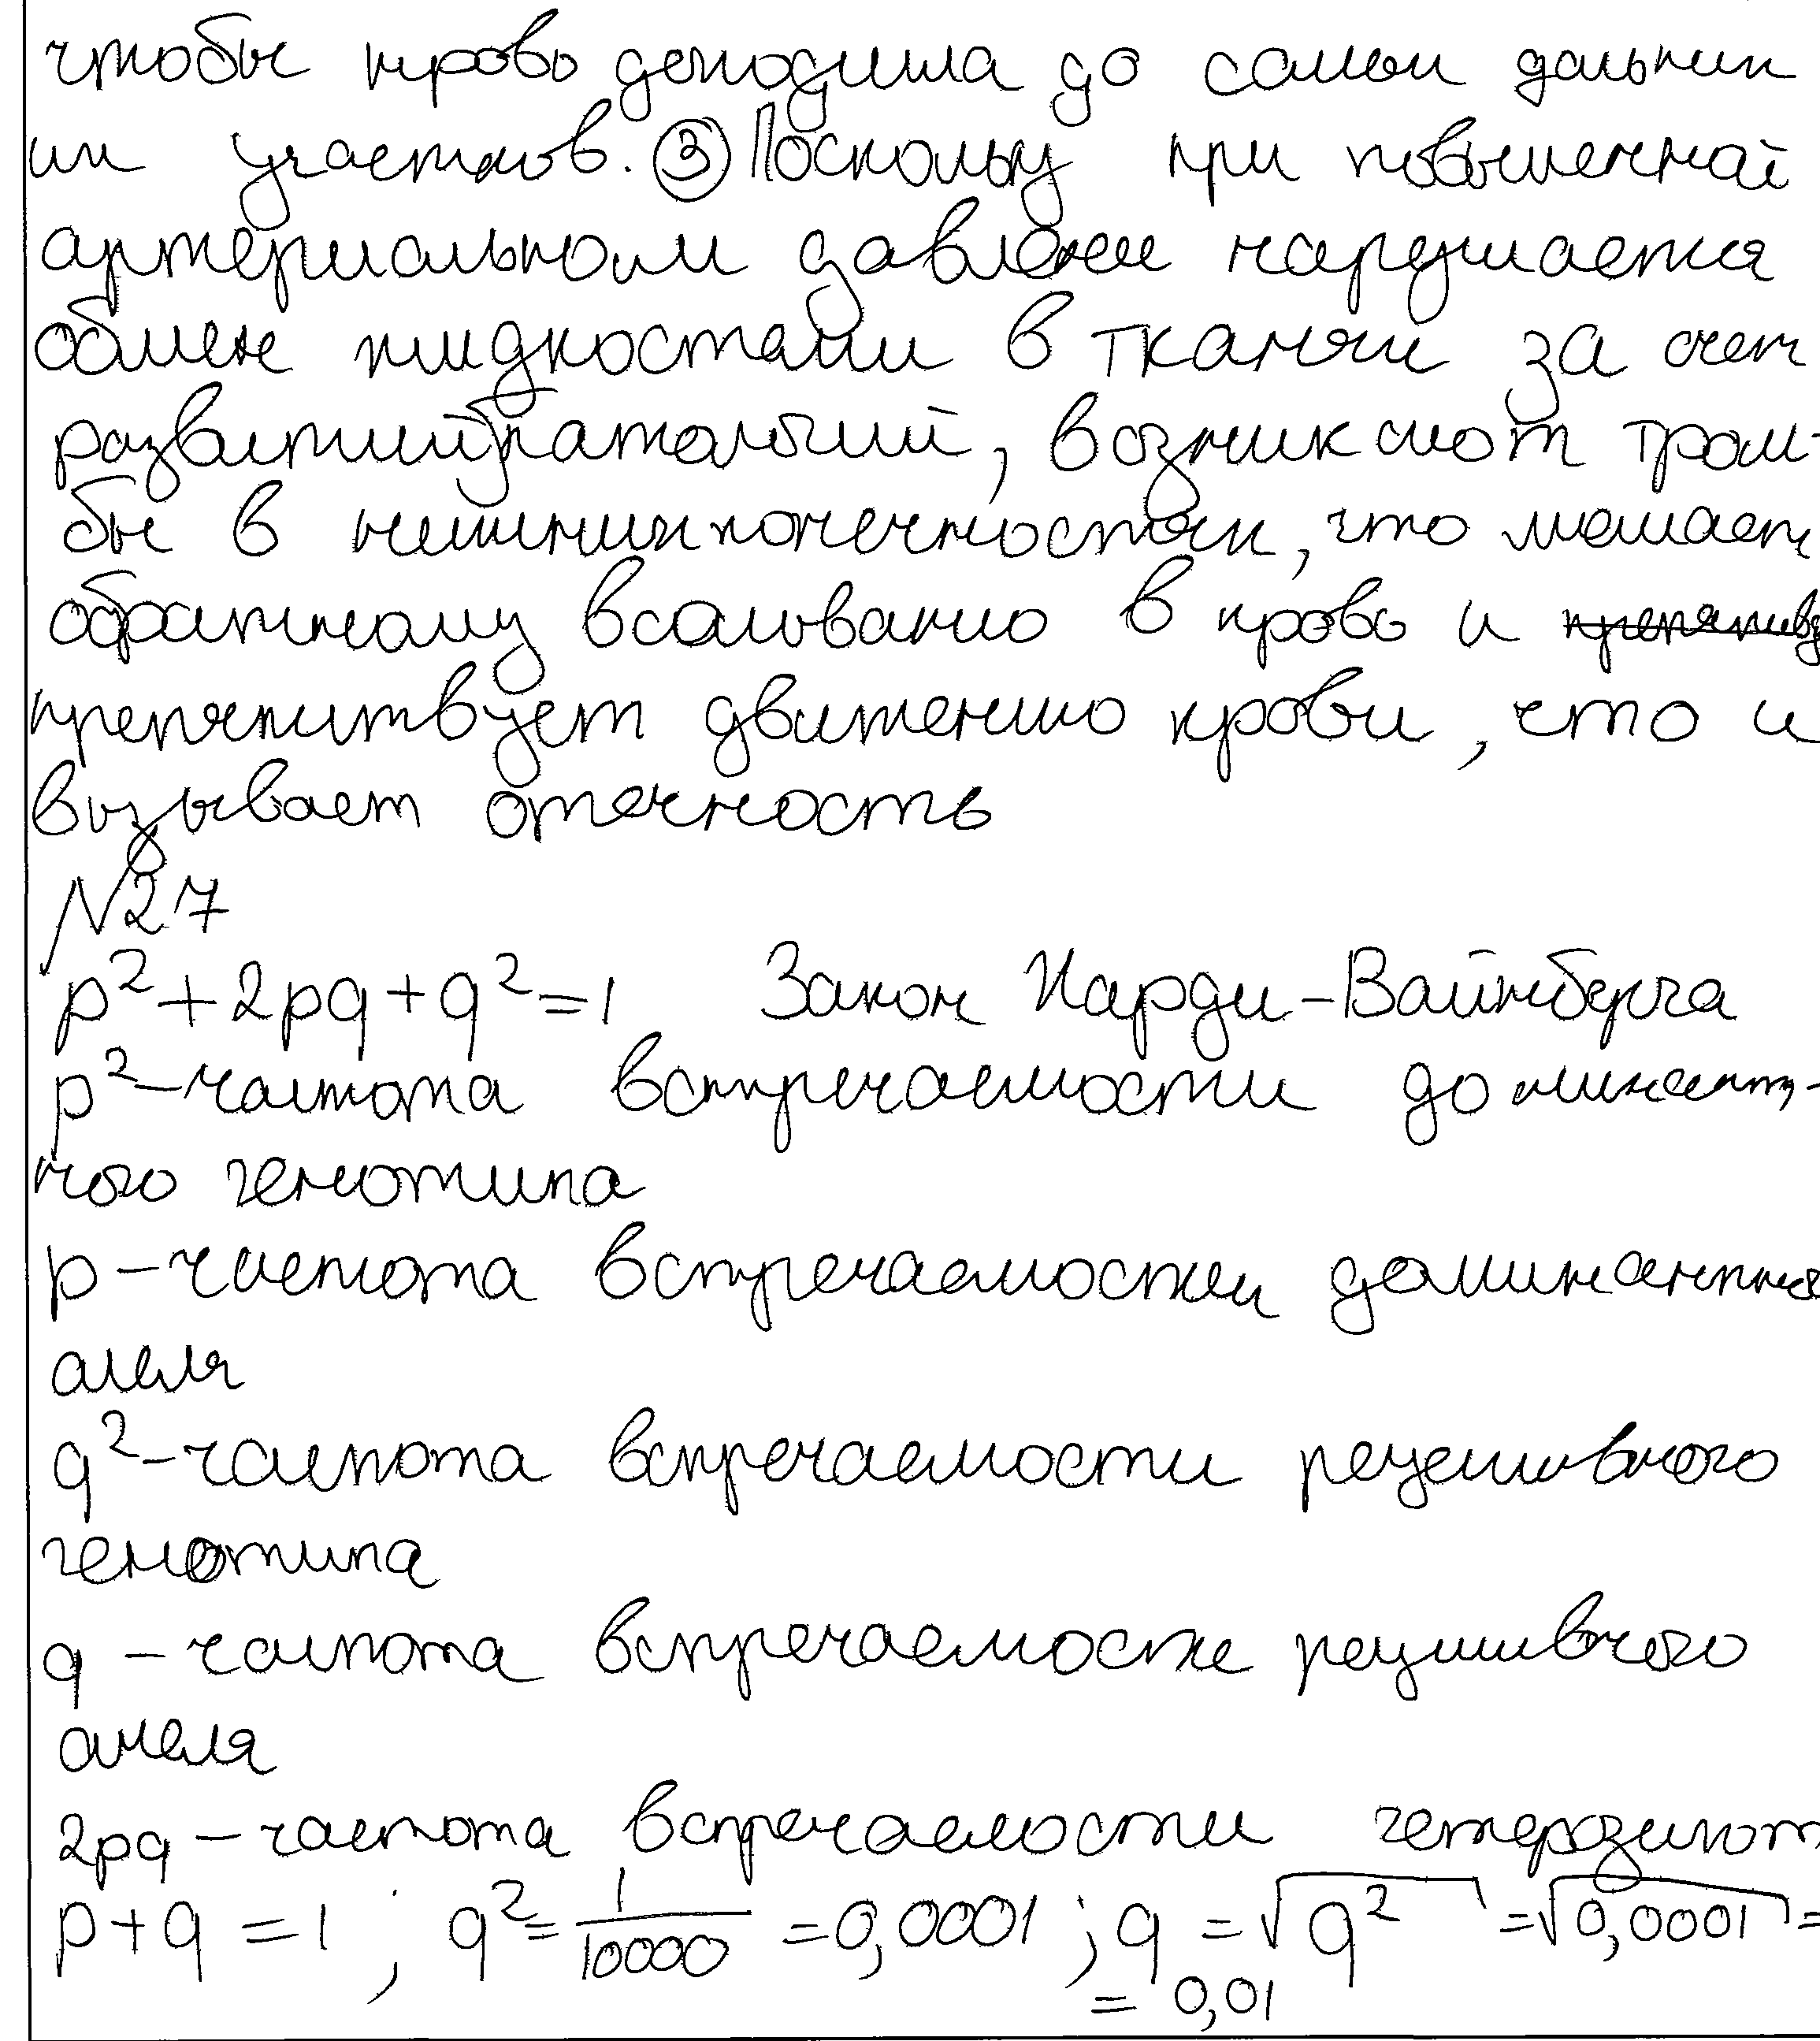 чтобы кровь доходила до самых дальних
их участков. ③ Поскольку при повышенной
артериальном давлении нарушается
обмен жидкостями в тканях за счет
развитий патологий, возникают тром-
бы в нижних конечностях, что мешает
обратному всасыванию в кровь и
препятствует движению крови, что и
вызывает отечность
№27
p²+2pq+q²=1 Закон Харди-Вайнберга
p²-частота встречаемости доминант-
ного генотипа
p-частота встречаемости
алеля
q²-частота встречаемости рецесивного
генотипа
q - частота встречаемости рецисивного
алеля
2pq - частота встречаемости гетерозигот
p+q=1; q²=1/10000=0,0001; q=√q²=√0,0001=
=0,01